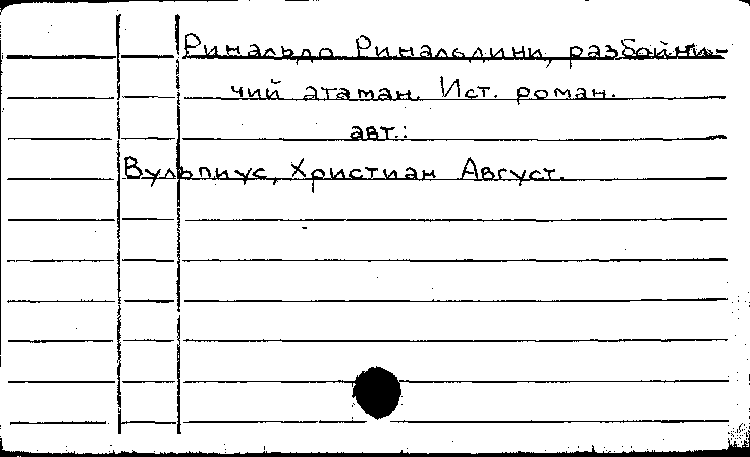 Ринальдо Ринальдини, разбойни-
чий атаман. Ист. роман.
авт.:
Вульпиус, Христиан Август.